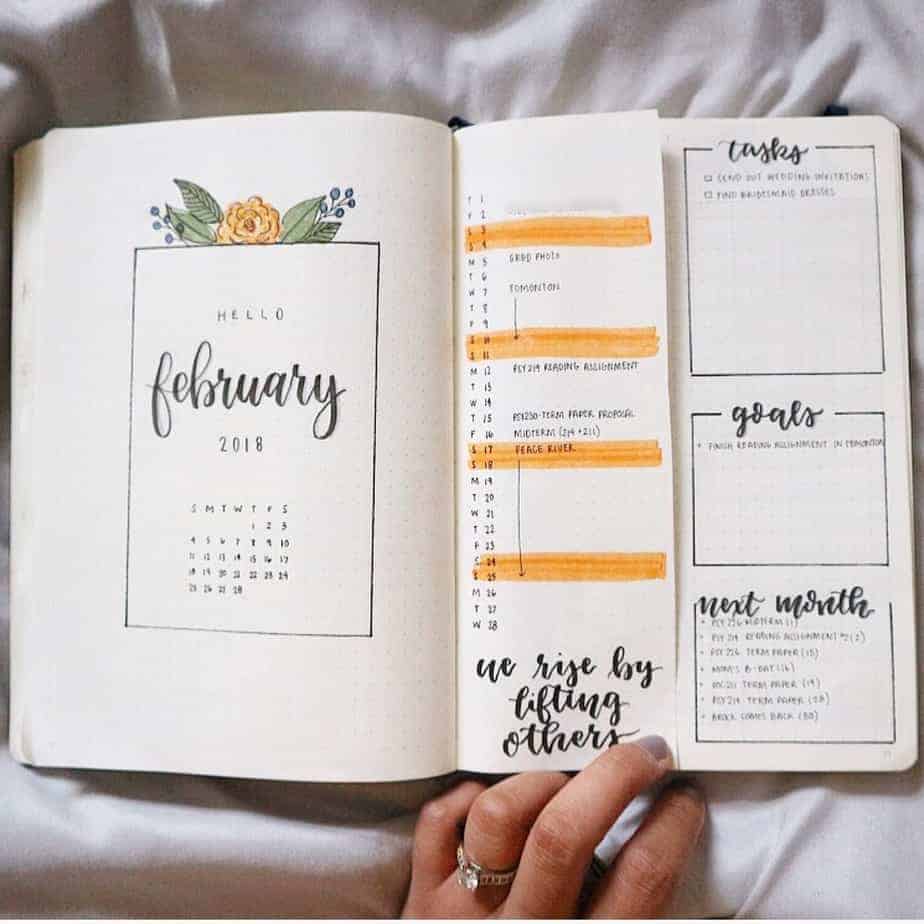 HELLO
february
2018
S M T W T F S
1 2 3
4 5 6 7 8 9 10
11 12 13 14 15 16 17
18 19 20 21 22 23 24
25 26 27 28
T 1
F 2
S 3
S 4
M 5 GRAD PHOTO
T 6
W 7 EDMONTON
T 8
F 9
S 10
S 11
M 12 PSY219 READING ASSIGNMENT
T 13
W 14
T 15 PSY230-TERM PAPER PROPOSAL
F 16 MIDTERM (214 + 211)
S 17 PEACE RIVER
S 18
M 19
T 20
W 21
T 22
F 23
S 24
S 25
M 26
T 27
W 28
we rise by
lifting
others
tasks
SEND OUT WEDDING INVITATIONS
FIND BRIDESMAID DRESSES
goals
FINISH READING ASSIGNMENT IN EDMONTON
next month
MIDTERM (1)
READING ASSIGNMENT #2 (2)
TERM PAPER (15)
MOM'S B-DAY (16)
TERM PAPER (19)
PSY219 TERM PAPER (28)
BROCK COMES BACK (30)